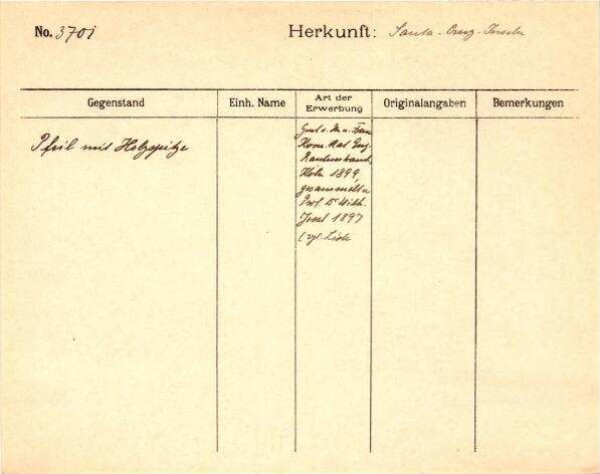 No. 3701 Herkunft: Santa-Cruz-Inseln
Gegenstand Einh. Name Art der Erwerbung Originalangaben Bemerkungen
Pfeil mit Holzspitze
Gesch. v. H. u. Frau
Kom. Rat Eug.
Rautenstrauch
Köln 1899,
gesammelt v.
Prof. Dr. Wilh.
Joest 1897
( vgl. Liste